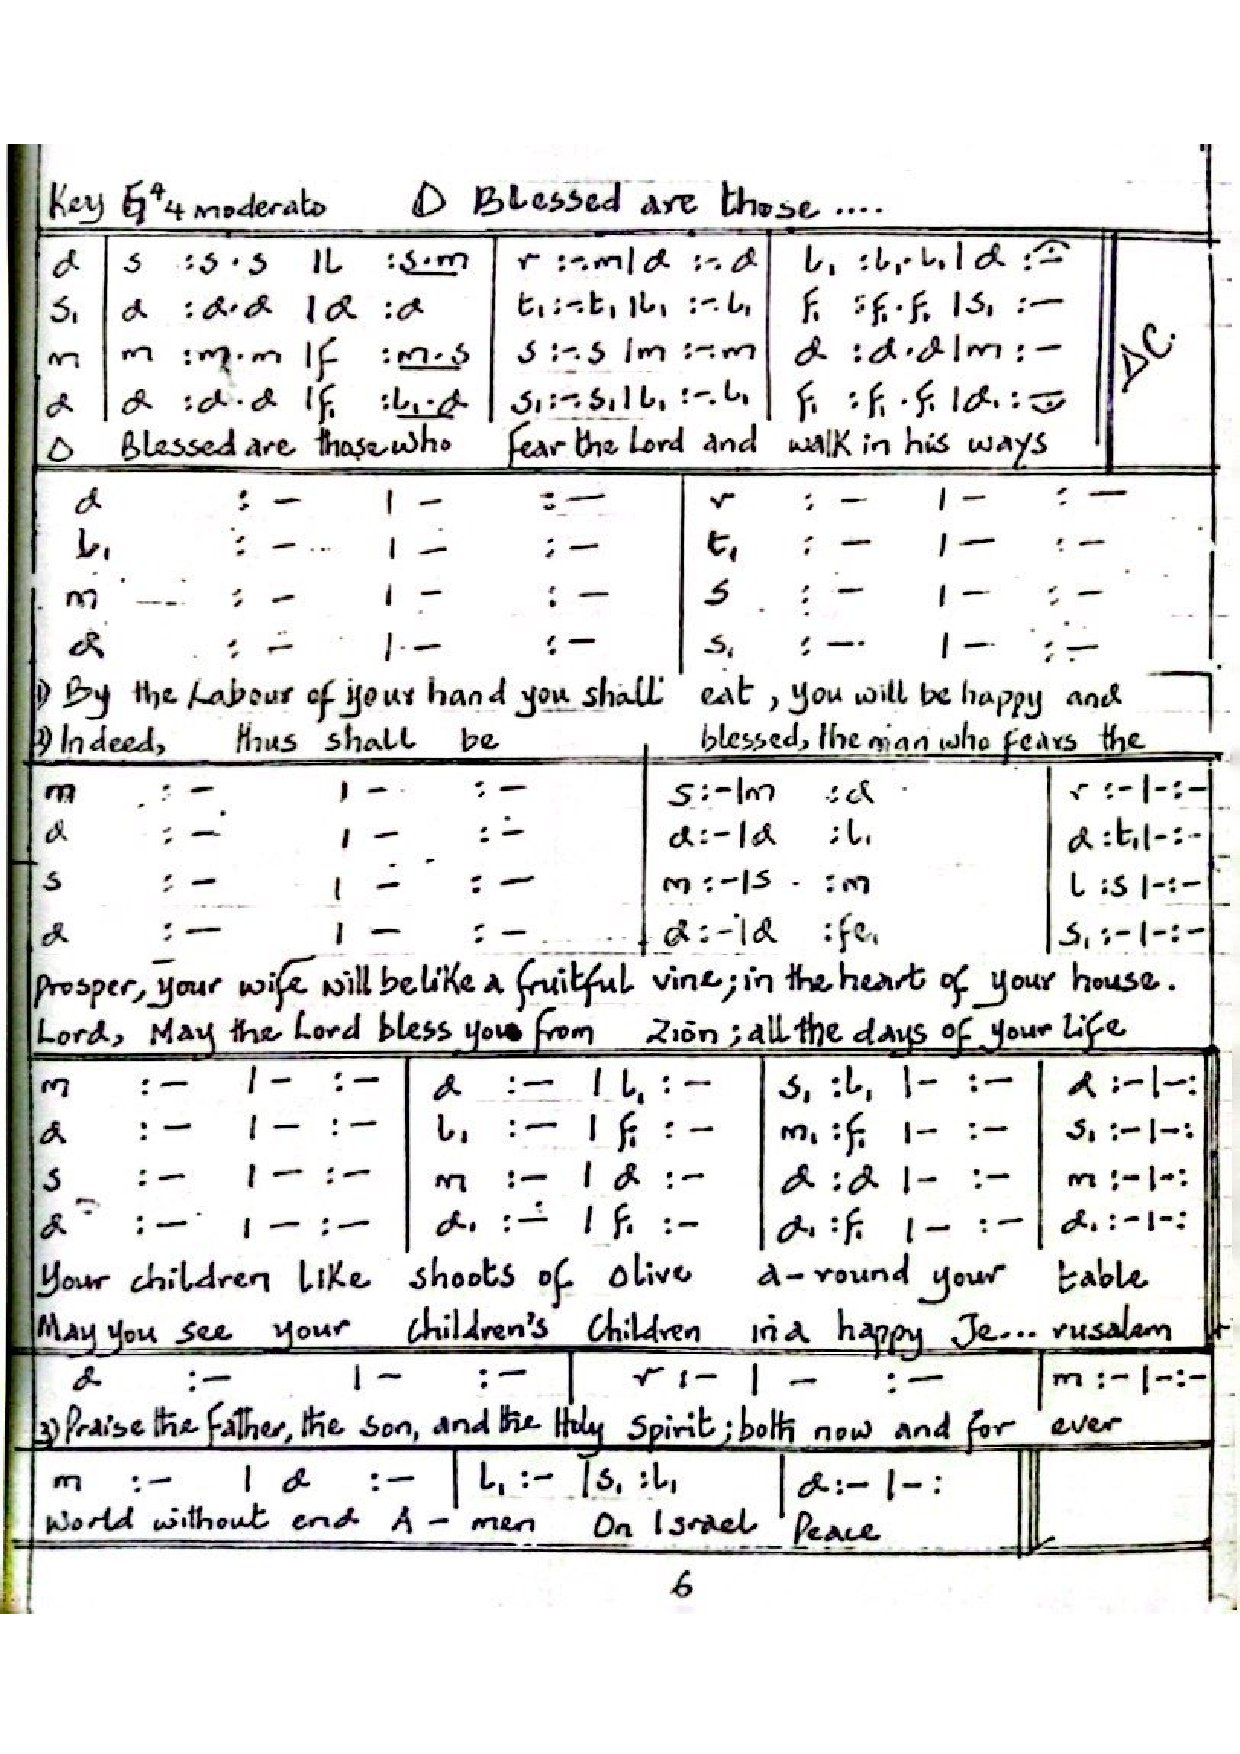 Key G 4/4 moderato D Blessed are those ....
d | s :s.s |l :s.m | r :-.m|d :-.d | l₁ :l₁.l₁|d :-
s₁ | d :d.d |d :d | t₁:-.t₁|l₁:-.l₁ | f₁ :f₁.f₁|s₁ :-
m | m :m.m |f :m.s | s :-.s|m :-.m | d :d.d|m :-
d | d :d.d |f₁ :l₁.d | s₁:-.s₁|l₁:-.l₁ | f₁ :f₁.f₁|d₁:-
D.C.
D Blessed are those who fear the Lord and walk in his ways
d :- |- :- | r :- |- :-
l₁ :- |- :- | t₁ :- |- :-
m :- |- :- | s :- |- :-
d :- |- :- | s₁ :- |- :-
1) By the Labour of your hand you shall eat, you will be happy and
2) Indeed, thus shall be blessed, the man who fears the
m :- |- :- | s:-|m :d | r :-|-:-
d :- |- :- | d:-|d :l₁ | d :t₁|-:-
s :- |- :- | m:-|s :m | l :s|-:-
d :- |- :- | d:-|d :fe₁ | s₁:-|-:-
Prosper, your wife will be like a fruitful vine; in the heart of your house.
Lord, May the Lord bless you from Zion; all the days of your life
m :- |- :- | d :- |l₁ :- | s₁ :l₁ |- :- | d :-|-:
d :- |- :- | l₁ :- |f₁ :- | m₁ :f₁ |- :- | s₁ :-|-:
s :- |- :- | m :- |d :- | d :d |- :- | m :-|-:
d :- |- :- | d₁ :- |f₁ :- | d₁ :f₁ |- :- | d₁ :-|-:
Your children like shoots of olive a-round your table
May you see your children's Children in a happy Je... rusalem
d :- |- :- | r :- |- :- | m :-|-:-
3) Praise the Father, the Son, and the Holy Spirit; both now and for ever
m :- |d :- | l₁ :- |s₁ :l₁ | d:-|-:
World without end A - men On Israel Peace
6